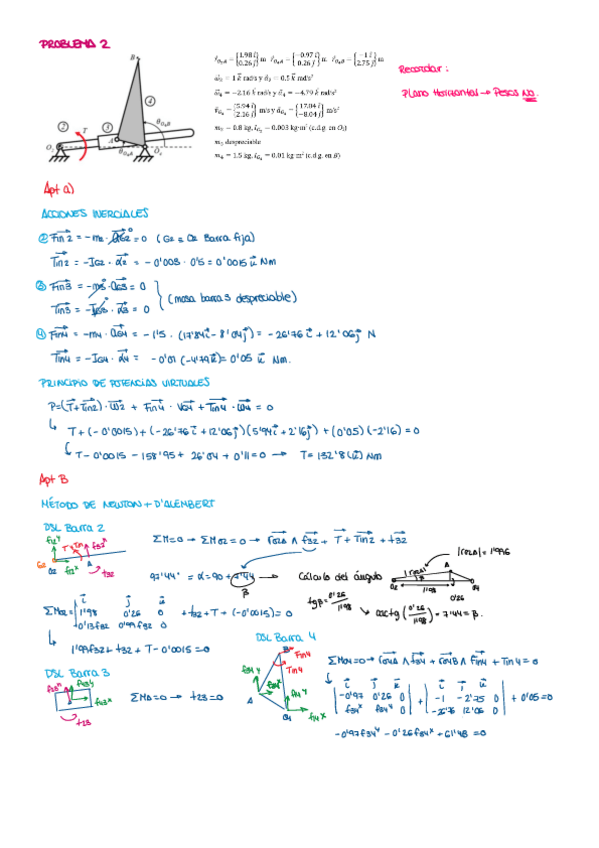 PROBLEMA 2
r⃗_O2A = {1.98 i⃗, 0.26 j⃗} m r⃗_O4A = {−0.97 i⃗, 0.26 j⃗} m r⃗_O4B = {−1 i⃗, 2.75 j⃗} m
ω⃗2 = 1 k⃗ rad/s y α⃗2 = 0.5 k⃗ rad/s²
ω⃗4 = −2.16 k⃗ rad/s y α⃗4 = −4.79 k⃗ rad/s²
v⃗G4 = {5.94 i⃗, 2.16 j⃗} m/s y a⃗G4 = {17.84 i⃗, −8.04 j⃗} m/s²
m2 = 0.8 kg, IG2 = 0.003 kg·m² (c.d.g. en O2)
m3 despreciable
m4 = 1.5 kg, IG4 = 0.01 kg·m² (c.d.g. en B)
Recordar:
Plano Horizontal → Pesos NO.
B
4
2
T
3
A
θO4B
θO4A
O2
O4
Apt a)
ACCIONES INERCIALES
② Fin2 = −m2 · aG2 = 0 (G2 = O2 Barra fija)
Tin2 = −IG2 · α2 = −0'003 · 0'5 = 0'0015 k⃗ Nm
③ Fin3 = −m3 · aG3 = 0
Tin3 = −IG3 · α3 = 0
(masa barra 3 despreciable)
④ Fin4 = −m4 · aG4 = −1'5 · (17'84i⃗ − 8'04j⃗) = −26'76 i⃗ + 12'06j⃗ N
Tin4 = −IG4 · α4 = −0'01 (−4'79k⃗) = 0'05 k⃗ Nm.
PRINCIPIO DE POTENCIAS VIRTUALES
P = (T + Tin2) · ω2 + Fin4 · VG4 + Tin4 · ω4 = 0
T + (−0'0015) + (−26'76i⃗ + 12'06j⃗)(5'94i⃗ + 2'16j⃗) + (0'05)(−2'16) = 0
T − 0'0015 − 158'95 + 26'04 + 0'11 = 0 → T = 132'8 (k⃗) Nm
Apt B
MÉTODO DE NEWTON + D'ALEMBERT
DSL Barra 2
ΣM = 0 → ΣMO2 = 0 → rO2A ∧ f32 + T + Tin2 + t32
|rO2A| = 1'996
97'44° = α = 90 + 7'44
β
Cálculo del ángulo
tgβ = 0'26/1'98
arctg (0'26/1'98) = 7'44 = β.
ΣMO2 = | i⃗ j⃗ k⃗ | 1'98 0'26 0 | 0'13f32 0'99f32 0 | + t32 + T + (−0'0015) = 0
1'99f32 + t32 + T − 0'0015 = 0
DSL Barra 4
DSL Barra 3
ΣMA = 0 → t23 = 0
ΣMO4 = 0 → rO4A ∧ f34 + rO4B ∧ Fin4 + Tin4 = 0
| i⃗ j⃗ k⃗ | −0'97 0'26 0 | f34ˣ f34ʸ 0 | + | i⃗ j⃗ k⃗ | −1 −2'75 0 | −26'76 12'06 0 | + 0'05 = 0
−0'97f34ʸ − 0'26f34ˣ + 61'48 = 0